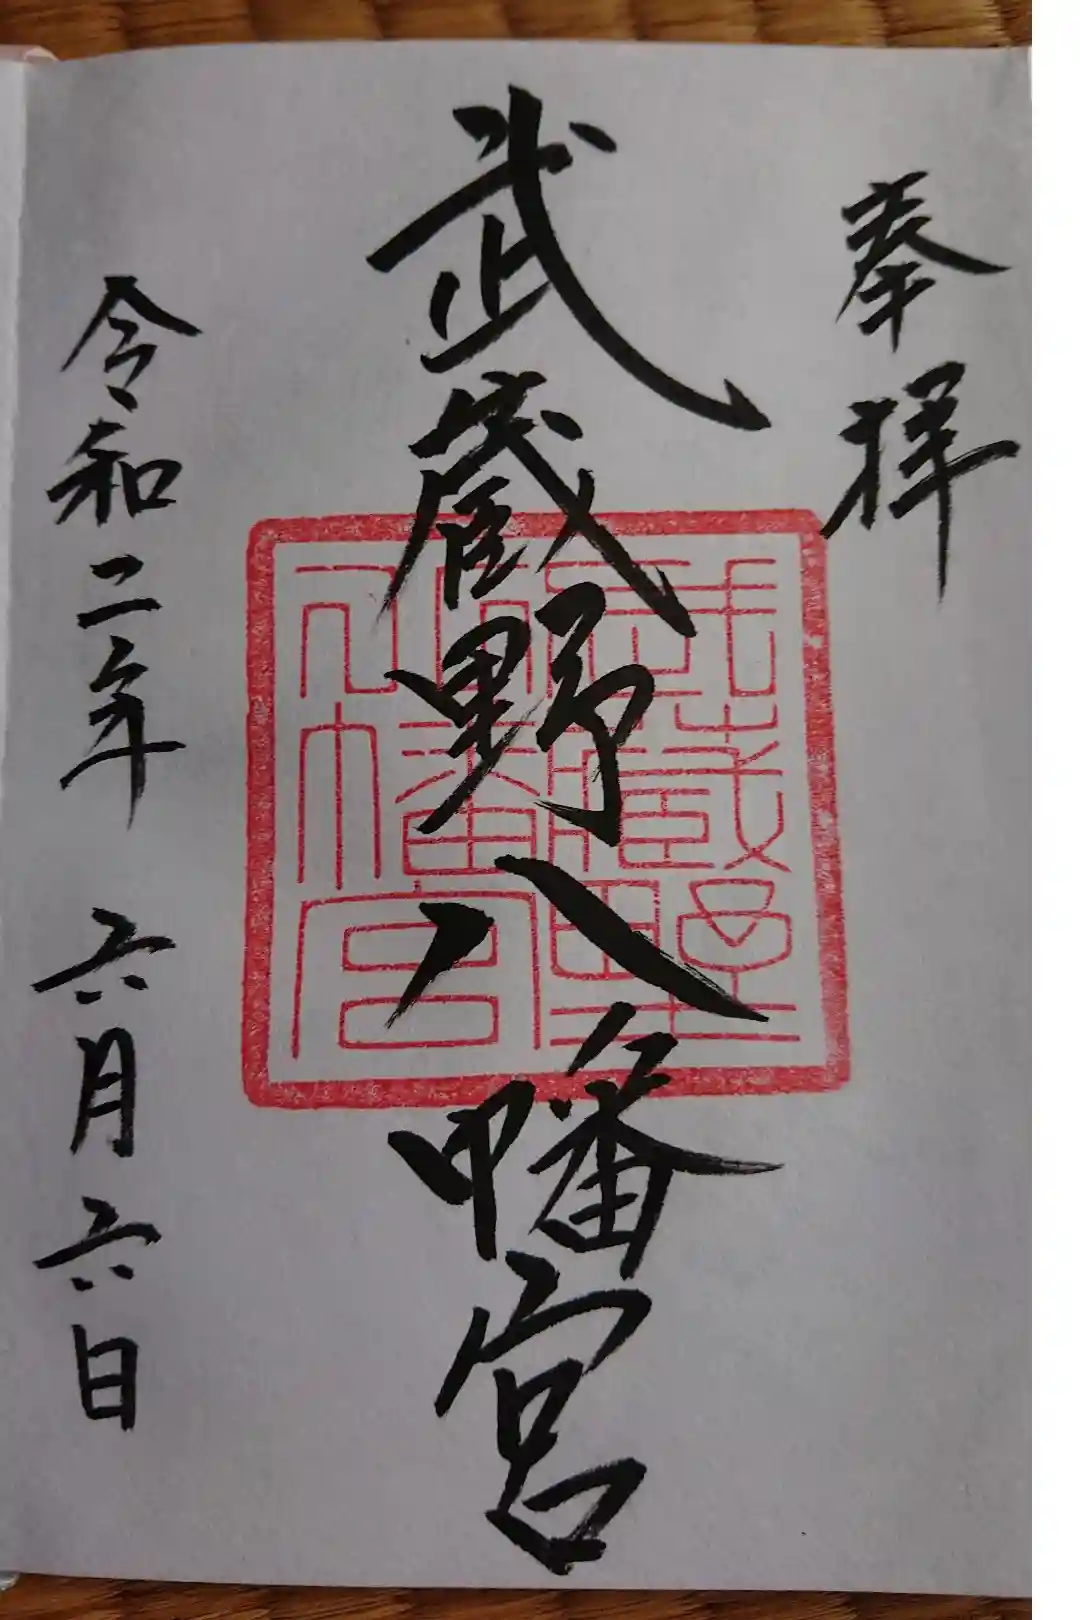 奉拝
武蔵野八幡宮
武蔵野八幡宮
令和二年 六月六日